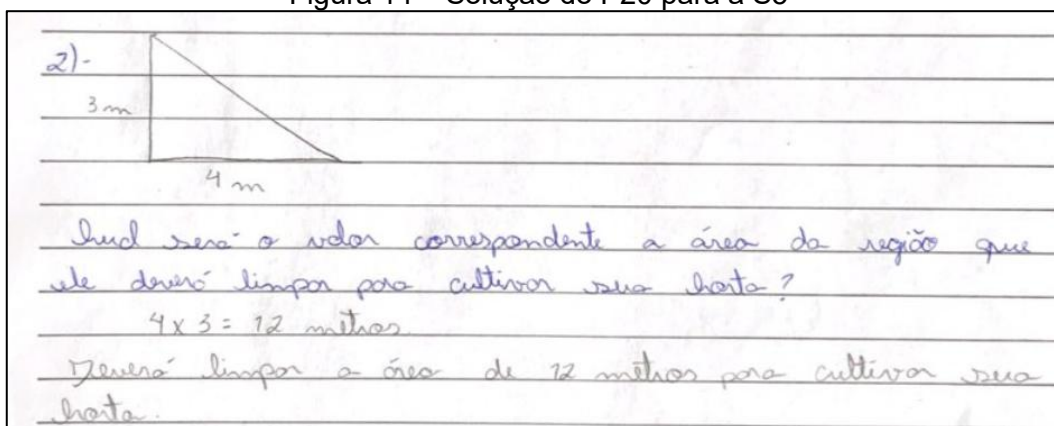 Figura – Solução de para a
2)-
3 m
4 m
Qual será o valor correspondente a área da região que
ele deverá limpar para cultivar sua horta?
4 x 3 = 12 metros
Deverá limpar a área de 12 metros para cultivar sua
horta.